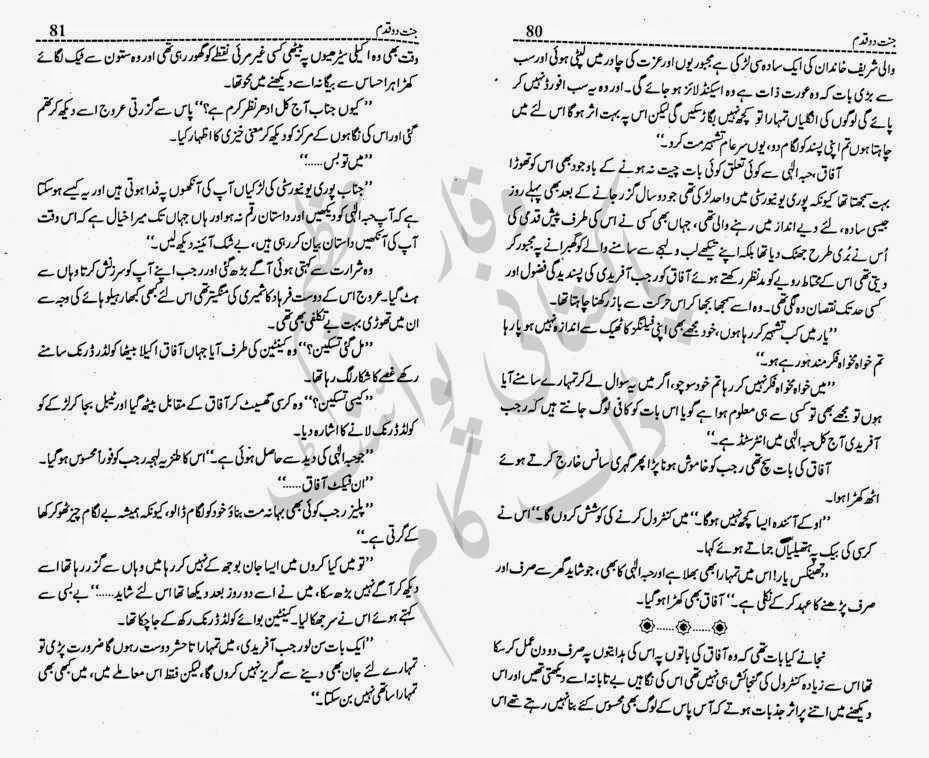 80 جنت دو قدم
والی شریف خاندان کی ایک سادہ سی لڑکی ہے مجبوریوں اور عزت کی چادر میں لپٹی ہوئی اور سب
سے بڑی بات کہ وہ عورت ذات ہے وہ اسکینڈلائز ہو جائے گی۔ اور وہ یہ سب افورڈ نہیں کر
پائے گی لوگوں کی انگلیاں تمہارا تو کچھ نہیں بگاڑ سکیں گی لیکن اس پہ بہت اثر ہوگا اس لئے میں
چاہتا ہوں تم اپنی پسند کو لگام دو، یوں سرعام تشہیر مت کرو۔‘‘
آفاق، حبہ الٰہی سے کوئی تعلق کوئی بات چیت نہ ہونے کے باوجود بھی اس کو تھوڑا
بہت سمجھتا تھا کیونکہ پوری یونیورسٹی میں واحد لڑکی تھی جو دو سال گزر جانے کے بعد بھی پہلے روز
جیسی سادہ، لئے دیے انداز میں رہنے والی تھی، جہاں بھی کسی نے اس کی طرف پیش قدمی کی
اُس نے بُری طرح جھٹک دیا تھا بلکہ اپنے تیکھے لب و لہجے سے سامنے والے کو گھبرانے پہ مجبور کر
دیتی تھی اس کے محتاط رویے کو مدنظر رکھتے ہوئے آفاق کو رجب آفریدی کی پسندیدگی فضول اور
کسی حد تک نقصان دہ لگی تھی۔ وہ اسے سمجھا بجھا کر اس حرکت سے باز رکھنا چاہتا تھا۔
’’یار میں کب تشہیر کر رہا ہوں، خود مجھے بھی اپنی فیلنگز کا ٹھیک سے اندازہ نہیں ہو پا رہا
تم خواہ مخواہ فکر مند ہو رہے ہو۔‘‘
’’میں خواہ مخواہ فکر نہیں کر رہا تم خود سوچو، اگر میں یہ سوال لے کر تمہارے سامنے آیا
ہوں تو مجھے بھی تو کسی سے ہی معلوم ہوا ہے گویا اس بات کو کافی لوگ جانتے ہیں کہ رجب
آفریدی آج کل حبہ الٰہی میں انٹرسٹڈ ہے۔‘‘
آفاق کی بات سچ تھی رجب کو خاموش ہونا پڑا پھر گہری سانس خارج کرتے ہوئے
اٹھ کھڑا ہوا۔
’’اوکے آئندہ ایسا کچھ نہیں ہوگا۔‘‘ میں کنٹرول کرنے کی کوشش کروں گا۔‘‘ اس نے
کرسی کی بیک پہ ہتھیلیاں جماتے ہوئے کہا۔
’’تھینکس یار! اس میں تمہارا بھی بھلا ہے اور حبہ الٰہی کا بھی، جو شاید گھر سے صرف اور
صرف پڑھنے کا عہد کر کے نکلی ہے۔‘‘ آفاق بھی کھڑا ہوگیا۔
نجانے کیا بات تھی کہ وہ آفاق کی باتوں پہ اس کی ہدایتوں پہ صرف دو دن عمل کر سکا
تھا اس سے زیادہ کنٹرول کی گنجائش ہی نہیں تھی اس کی نگاہیں بے تابانہ اسے دیکھتی تھیں اور اس
دیکھنے میں اتنے پر اثر جذبات ہوتے کہ آس پاس کے لوگ بھی محسوس کئے بنا نہیں رہتے تھے اس
81 جنت دو قدم
وقت بھی وہ اکیلی سیڑھیوں پہ بیٹھی کسی غیر مرئی نقطے کو گھور رہی تھی اور وہ ستون سے ٹیک لگائے
کھڑا ہر احساس سے بیگانہ اسے دیکھنے میں محو تھا۔
’’کیوں جناب آج کل ادھر نظر کرم ہے؟‘‘ پاس سے گزرتی عروج اسے دیکھ کر تھم
گئی اور اس کی نگاہوں کے مرکز کو دیکھ کر معنی خیزی کا اظہار کیا۔
’’میں تو بس……‘‘
’’جناب پوری یونیورسٹی کی لڑکیاں آپ کی آنکھوں پہ فدا ہوتی ہیں اور یہ کیسے ہوسکتا
ہے کہ آپ حبہ الٰہی کو دیکھیں اور داستان رقم نہ ہو اور ہاں جہاں تک میرا خیال ہے کہ اس وقت
آپ کی آنکھیں داستان بیان کر رہی ہیں، بے شک آئینہ دیکھ لیں۔‘‘
وہ شرارت سے کہتی ہوئی آگے بڑھ گئی اور رجب اپنے آپ کو سرزنش کرتا وہاں سے
ہٹ گیا۔ عروج اس کے دوست فرہاد کاشمیری کی منگیتر تھی اس لئے کبھی کبھار ہیلو ہائے کی وجہ سے
ان میں تھوڑی بہت بے تکلفی بھی تھی۔
’’مل گئی تسکین؟‘‘ وہ کینٹین کی طرف آیا جہاں آفاق اکیلا بیٹھا کولڈ ڈرنک سامنے
رکھے غصے کا شکار لگ رہا تھا۔
’’کیسی تسکین؟‘‘ وہ کرسی گھسیٹ کر آفاق کے مقابل بیٹھ گیا اور ٹیبل بجا کر لڑکے کو
کولڈ ڈرنک لانے کا اشارہ دیا۔
’’جو حبہ الٰہی کی دید سے حاصل ہوئی ہے۔‘‘ اس کا طنزیہ لہجہ رجب کو فوراً محسوس ہوگیا۔
’’ان فیکٹ آفاق……‘‘
’’پلیز رجب کوئی بھی بہانہ مت بناؤ خود کو لگام ڈالو، کیونکہ ہمیشہ بے لگام چیز ٹھوکر کھا
کے گرتی ہے۔‘‘
’’تو میں کیا کروں میں ایسا جان بوجھ کے نہیں کر رہا میں وہاں سے گزر رہا تھا اسے
دیکھ کر آگے نہیں بڑھ سکا، میں نے اسے دو روز بعد دیکھا تھا اس لئے شاید……‘‘ بے بسی سے
کہتے ہوئے اس نے سر جھکا لیا۔ کینٹین بوائے کولڈ ڈرنک رکھ کے جا چکا تھا۔
’’ایک بات سن لو رجب آفریدی، میں تمہارا تا حشر دوست رہوں گا ضرورت پڑی تو
تمہارے لئے جان بھی دینے سے گریز نہیں کروں گا، لیکن فقط اس معاملے میں، میں کبھی بھی
تمہارا ساتھی نہیں بن سکتا۔‘‘